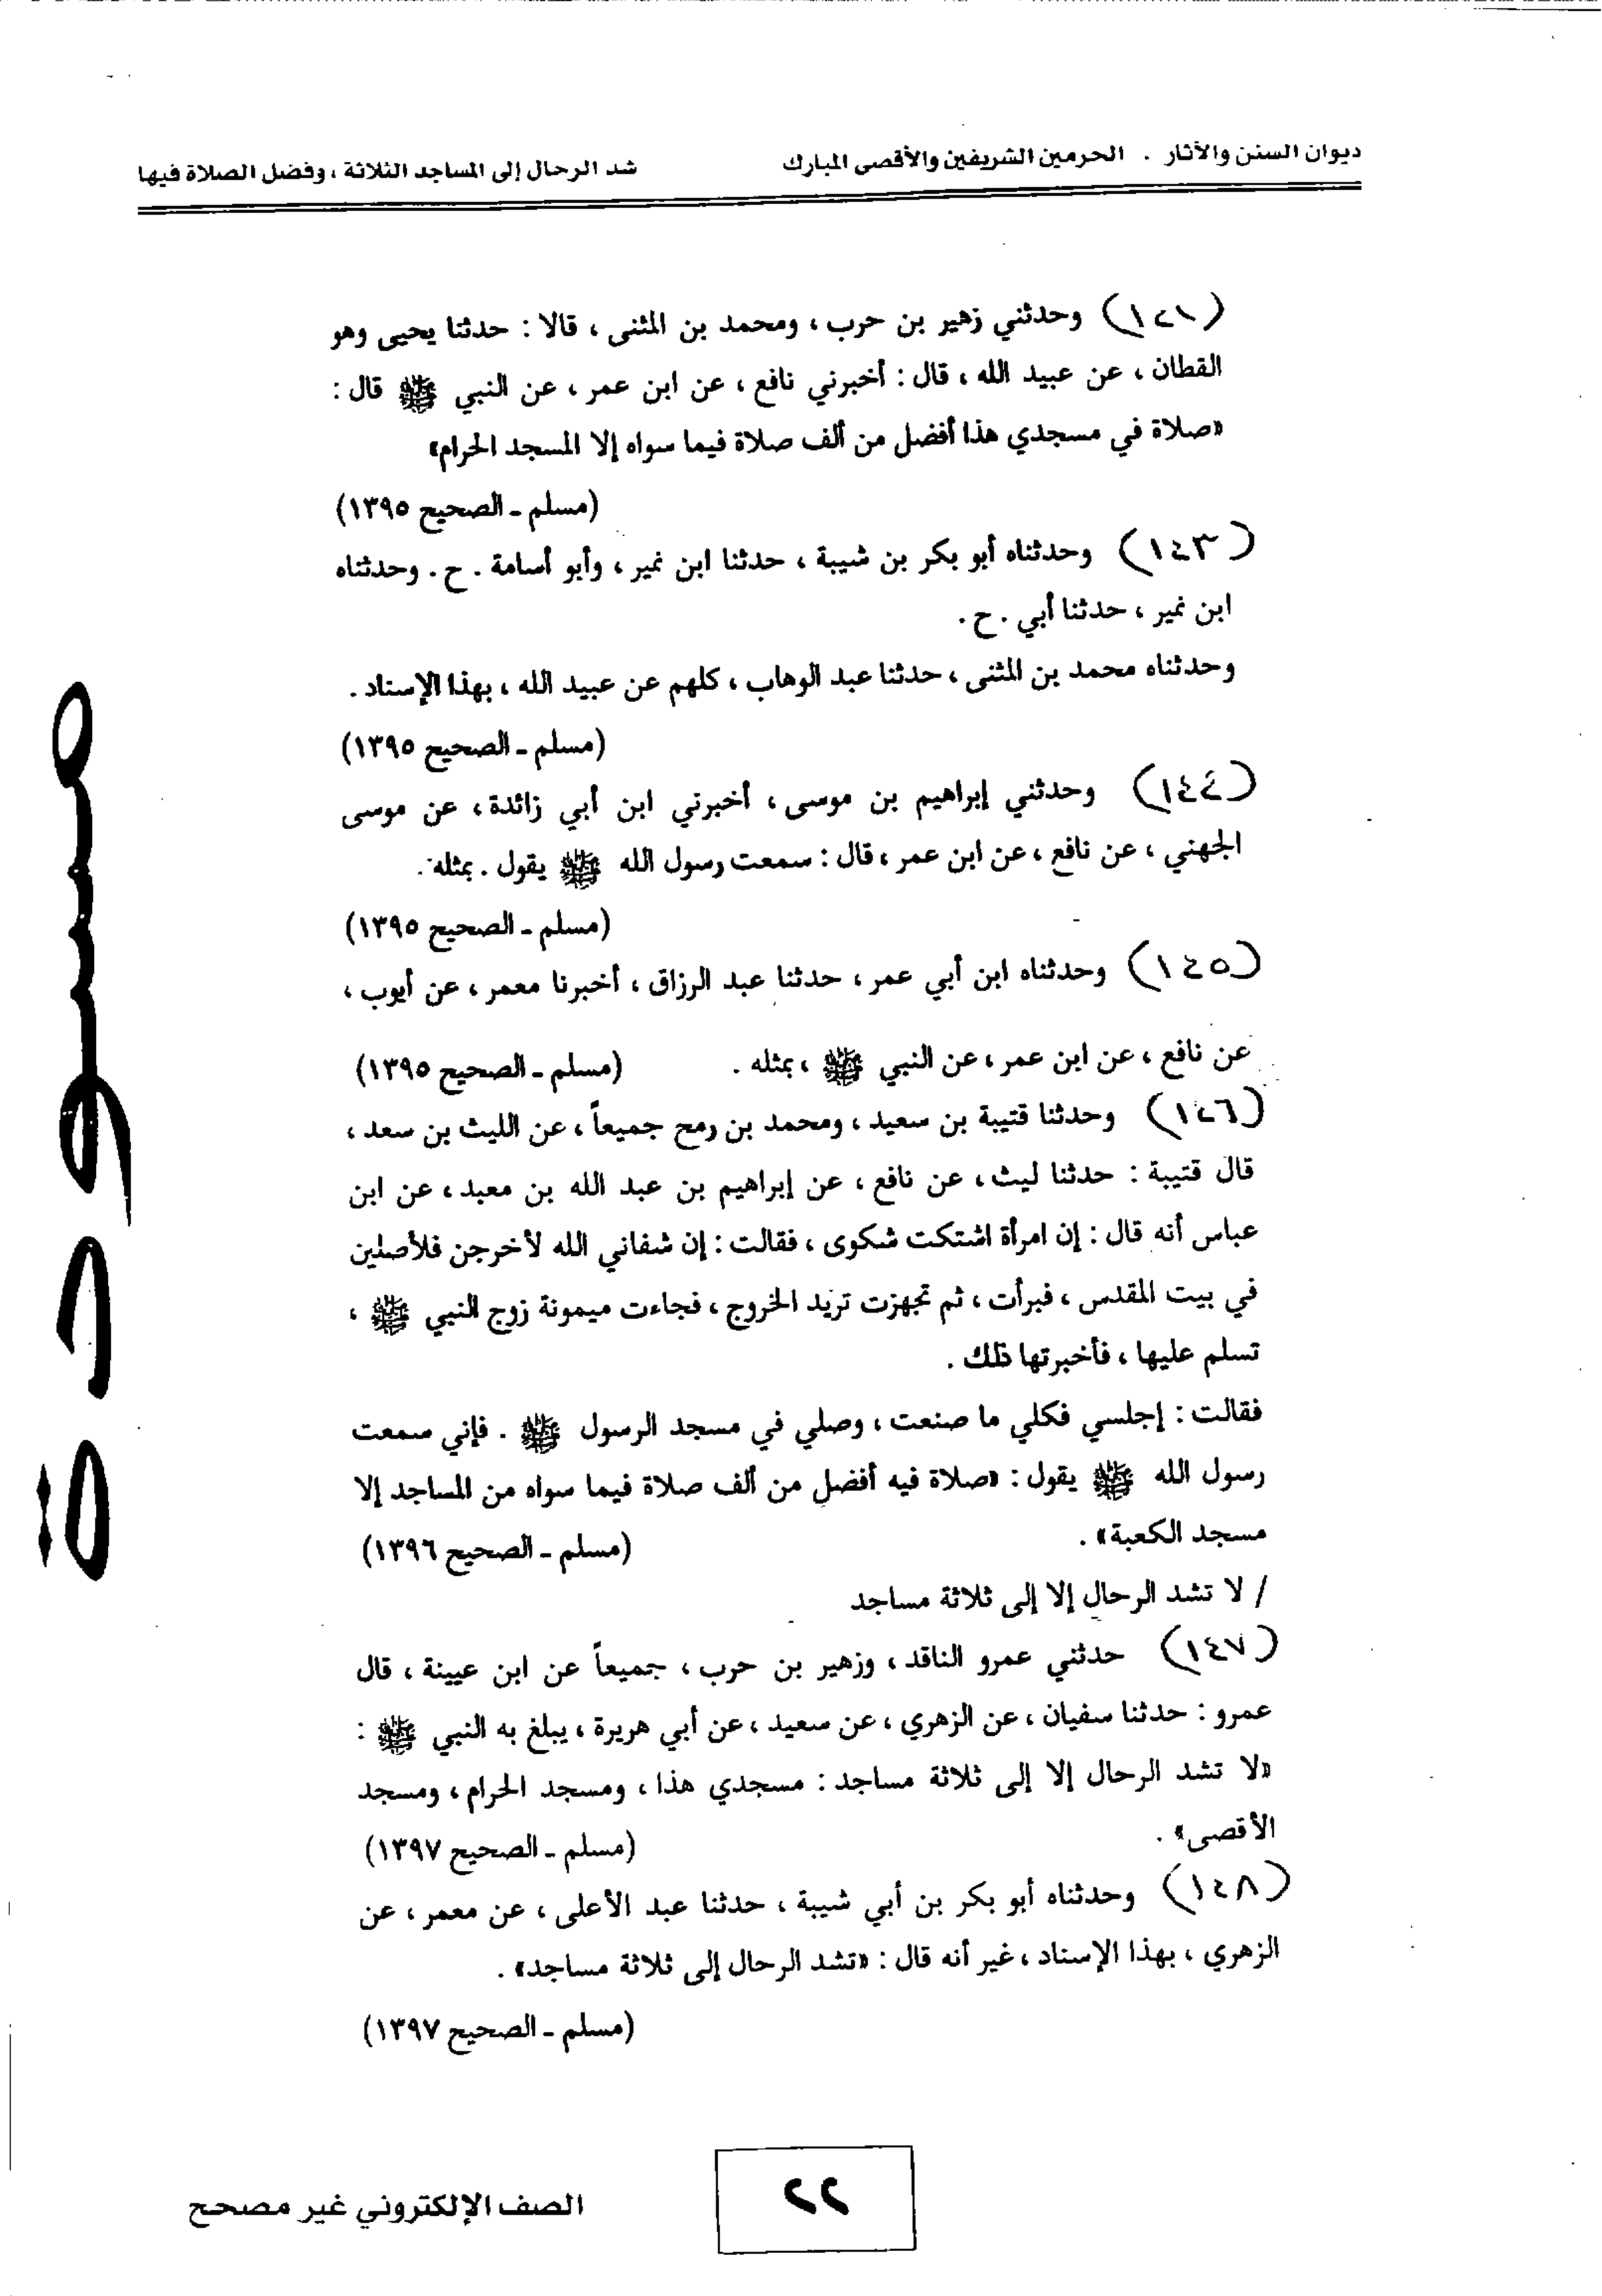 ديوان السنن والآثار . الحرمين الشريفين والأقصى المبارك
شد الرحال إلى المساجد الثلاثة ، وفضل الصلاة فيها
وحدثني زهير بن حرب ، ومحمد بن المثنى ، قالا : حدثنا يحيى وهو
القطان ، عن عبيد الله ، قال : أخبرني نافع ، عن ابن عمر ، عن النبي ﷺ قال :
«صلاة في مسجدي هذا أفضل من ألف صلاة فيما سواه إلا المسجد الحرام»
(مسلم ـ الصحيح ١٣٩٥)
(١٤٣) وحدثناه أبو بكر بن شيبة ، حدثنا ابن نمير ، وأبو أسامة . ح . وحدثناه
ابن نمير ، حدثنا أبي . ح .
وحدثناه محمد بن المثنى ، حدثنا عبد الوهاب ، كلهم عن عبيد الله ، بهذا الإسناد .
(مسلم ـ الصحيح ١٣٩٥)
(١٤٤) وحدثني إبراهيم بن موسى ، أخبرني ابن أبي زائدة ، عن موسى
الجهني ، عن نافع ، عن ابن عمر ، قال : سمعت رسول الله ﷺ يقول . بمثله .
(مسلم ـ الصحيح ١٣٩٥)
(١٤٥) وحدثناه ابن أبي عمر ، حدثنا عبد الرزاق ، أخبرنا معمر ، عن أيوب ،
عن نافع ، عن ابن عمر ، عن النبي ﷺ ، بمثله . (مسلم ـ الصحيح ١٣٩٥)
(١٤٦) وحدثنا قتيبة بن سعيد ، ومحمد بن رمح جميعاً ، عن الليث بن سعد ،
قال قتيبة : حدثنا ليث ، عن نافع ، عن إبراهيم بن عبد الله بن معبد ، عن ابن
عباس أنه قال : إن امرأة اشتكت شكوى ، فقالت : إن شفاني الله لأخرجن فلأصلين
في بيت المقدس ، فبرأت ، ثم تجهزت تريد الخروج ، فجاءت ميمونة زوج النبي ﷺ ،
تسلم عليها ، فأخبرتها ذلك .
فقالت : إجلسي فكلي ما صنعت ، وصلي في مسجد الرسول ﷺ . فإني سمعت
رسول الله ﷺ يقول : «صلاة فيه أفضل من ألف صلاة فيما سواه من المساجد إلا
مسجد الكعبة» . (مسلم ـ الصحيح ١٣٩٦)
/ لا تشد الرحال إلا إلى ثلاثة مساجد
(١٤٧) حدثني عمرو الناقد ، وزهير بن حرب ، جميعاً عن ابن عيينة ، قال
عمرو : حدثنا سفيان ، عن الزهري ، عن سعيد ، عن أبي هريرة ، يبلغ به النبي ﷺ :
«لا تشد الرحال إلا إلى ثلاثة مساجد : مسجدي هذا ، ومسجد الحرام ، ومسجد
الأقصى» . (مسلم ـ الصحيح ١٣٩٧)
(١٤٨) وحدثناه أبو بكر بن أبي شيبة ، حدثنا عبد الأعلى ، عن معمر ، عن
الزهري ، بهذا الإسناد ، غير أنه قال : «تشد الرحال إلى ثلاثة مساجد» .
(مسلم ـ الصحيح ١٣٩٧)
مسودة
٢٢
الصف الإلكتروني غير مصحح